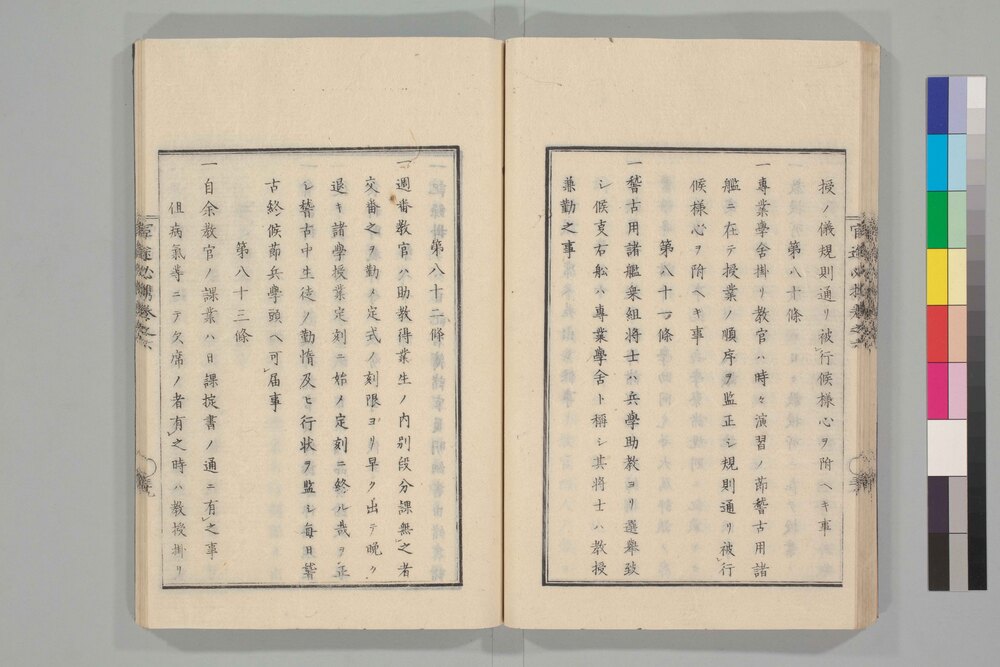 授ノ儀規則通リ被行候様心ヲ附ヘキ事
第八十條
一專業學舍掛リ教官ハ時々演習ノ節稽古用諸
艦ニ在テ授業ノ順序ヲ監正シ規則通リ被行
候様心ヲ附ヘキ事
第八十一條
一稽古用諸艦乘組將士ハ兵學助教ヨリ選擧致
シ候支右舩ハ專業學舍ト稱シ其將士ハ教授
兼勤之事
第八十二條
一週番教官ハ助教得業生ノ内別段分課無之者
交番之ヲ勤メ定式ノ刻限ヨリ早ク出テ晩ク
退キ諸學授業定刻ニ始メ定刻ニ終ル哉ヲ正
シ稽古中生徒ノ勤惰及ヒ行状ヲ監シ毎日稽
古終候節兵學頭ヘ可届事
第八十三條
一自余教官ノ課業ハ日課掟書ノ通ニ有之事
但病氣等ニテ欠席ノ者有之時ハ教授掛リ